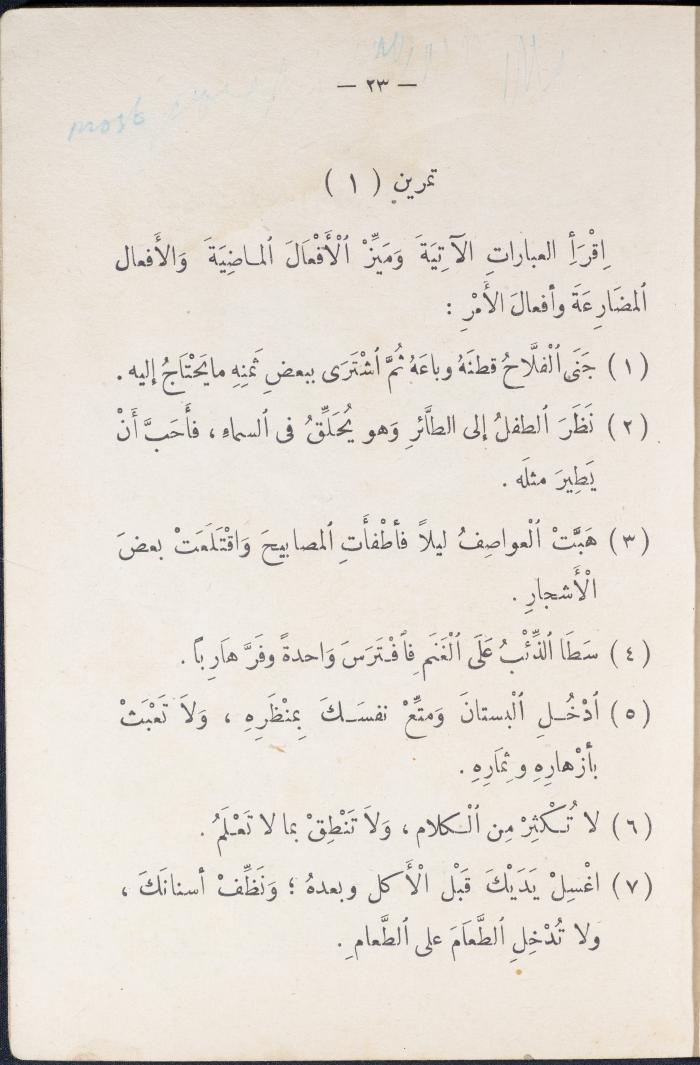 most
— ٢٣ —
تمرين ( ١ )
اِقْرَأِ العبارات الآتِيَةَ وَمَيِّزْ ٱلْأَفْعَالَ ٱلماضِيَةَ وَالأَفعال
ٱلمضَارِعَةَ وأفعالَ الأَمْرِ :
( ١ ) جَنَى ٱلْفلَّاحُ قطنَهُ وباعَهُ ثُمَّ ٱشْتَرَى ببعضِ ثَمنِهِ مايَحْتَاجُ إليه .
( ٢ ) نَظَرَ ٱلطفلُ إلى الطَّائرِ وَهو يُحَلِّقُ فى ٱلسماءِ ، فأَحَبَّ أَنْ
يَطِيرَ مثلَه .
( ٣ ) هَبَّتْ ٱلْعواصِفُ ليلاً فأطْفأَتِ ٱلمصابيحَ وَاقْتَلَعَتْ بعضَ
الْأَشجارِ .
( ٤ ) سَطَا ٱلذِّئْبُ عَلَى ٱلْغَنَمِ فٱفْتَرَسَ وَاحدةً وفَرَّ هَارِباً .
( ٥ ) ٱدْخُلِ ٱلْبستانَ وَمتِّعْ نفسَكَ بِمنْظَرِهِ ، وَلاَ تَعْبَثْ
بأَزْهارِهِ وثِمَارِهِ .
( ٦ ) لا تُكْثِرْ مِن ٱلْكلام ، وَلاَ تَنْطِقْ بما لا تَعْلَمُ .
( ٧ ) اغْسِلْ يَدَيْكَ قَبْل الْأَكل وبعدهُ ؛ وَنَظِّفْ أسنانَكَ ،
ولا تُدْخِلِ ٱلطَّعَامَ على ٱلطَّعامِ .